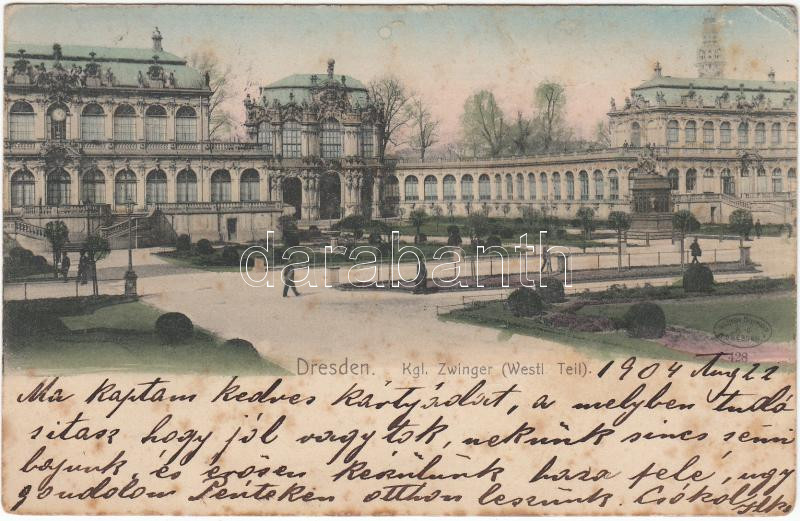 darabanth
Dresden. Kgl. Zwinger (Westl. Teil). 1904 Aug 22
428
Ma kaptam kedves kártyádat, a melyben tudó
sitasz hogy jól vagytok, nekünk sincs semi
bajunk, és erősen készülünk haza felé, ugy
gondolom Pénteken otthon leszünk. Csókol